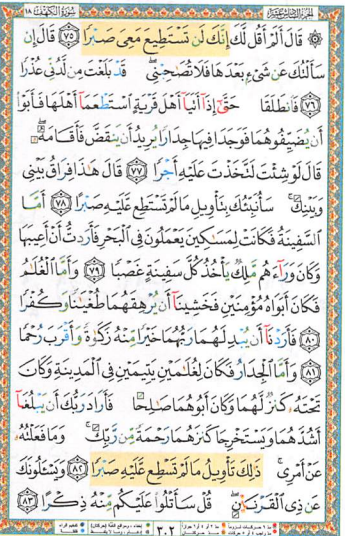 الجزء السادس عشر سورة الكهف ١٨
۞ قَالَ أَلَمْ أَقُل لَّكَ إِنَّكَ لَن تَسْتَطِيعَ مَعِيَ صَبْرًا ٧٥ قَالَ إِن
سَأَلْتُكَ عَن شَيْءٍ بَعْدَهَا فَلَا تُصَٰحِبْنِي ۖ قَدْ بَلَغْتَ مِن لَّدُنِّي عُذْرًا
٧٦ فَٱنطَلَقَا حَتَّىٰٓ إِذَآ أَتَيَآ أَهْلَ قَرْيَةٍ ٱسْتَطْعَمَآ أَهْلَهَا فَأَبَوْا۟
أَن يُضَيِّفُوهُمَا فَوَجَدَا فِيهَا جِدَارًا يُرِيدُ أَن يَنقَضَّ فَأَقَامَهُۥ ۖ
قَالَ لَوْ شِئْتَ لَتَّخَذْتَ عَلَيْهِ أَجْرًا ٧٧ قَالَ هَٰذَا فِرَاقُ بَيْنِي
وَبَيْنِكَ ۚ سَأُنَبِّئُكَ بِتَأْوِيلِ مَا لَمْ تَسْتَطِع عَّلَيْهِ صَبْرًا ٧٨ أَمَّا
ٱلسَّفِينَةُ فَكَانَتْ لِمَسَٰكِينَ يَعْمَلُونَ فِي ٱلْبَحْرِ فَأَرَدتُّ أَنْ أَعِيبَهَا
وَكَانَ وَرَآءَهُم مَّلِكٌ يَأْخُذُ كُلَّ سَفِينَةٍ غَصْبًا ٧٩ وَأَمَّا ٱلْغُلَٰمُ
فَكَانَ أَبَوَاهُ مُؤْمِنَيْنِ فَخَشِينَآ أَن يُرْهِقَهُمَا طُغْيَٰنًا وَكُفْرًا
٨٠ فَأَرَدْنَآ أَن يُبْدِلَهُمَا رَبُّهُمَا خَيْرًا مِّنْهُ زَكَوٰةً وَأَقْرَبَ رُحْمًا
٨١ وَأَمَّا ٱلْجِدَارُ فَكَانَ لِغُلَٰمَيْنِ يَتِيمَيْنِ فِي ٱلْمَدِينَةِ وَكَانَ
تَحْتَهُۥ كَنزٌ لَّهُمَا وَكَانَ أَبُوهُمَا صَٰلِحًا فَأَرَادَ رَبُّكَ أَن يَبْلُغَآ
أَشُدَّهُمَا وَيَسْتَخْرِجَا كَنزَهُمَا رَحْمَةً مِّن رَّبِّكَ ۚ وَمَا فَعَلْتُهُۥ
عَنْ أَمْرِي ۚ ذَٰلِكَ تَأْوِيلُ مَا لَمْ تَسْطِع عَّلَيْهِ صَبْرًا ٨٢ وَيَسْـَٔلُونَكَ
عَن ذِي ٱلْقَرْنَيْنِ ۖ قُلْ سَأَتْلُوا۟ عَلَيْكُم مِّنْهُ ذِكْرًا ٨٣
٣٠٢